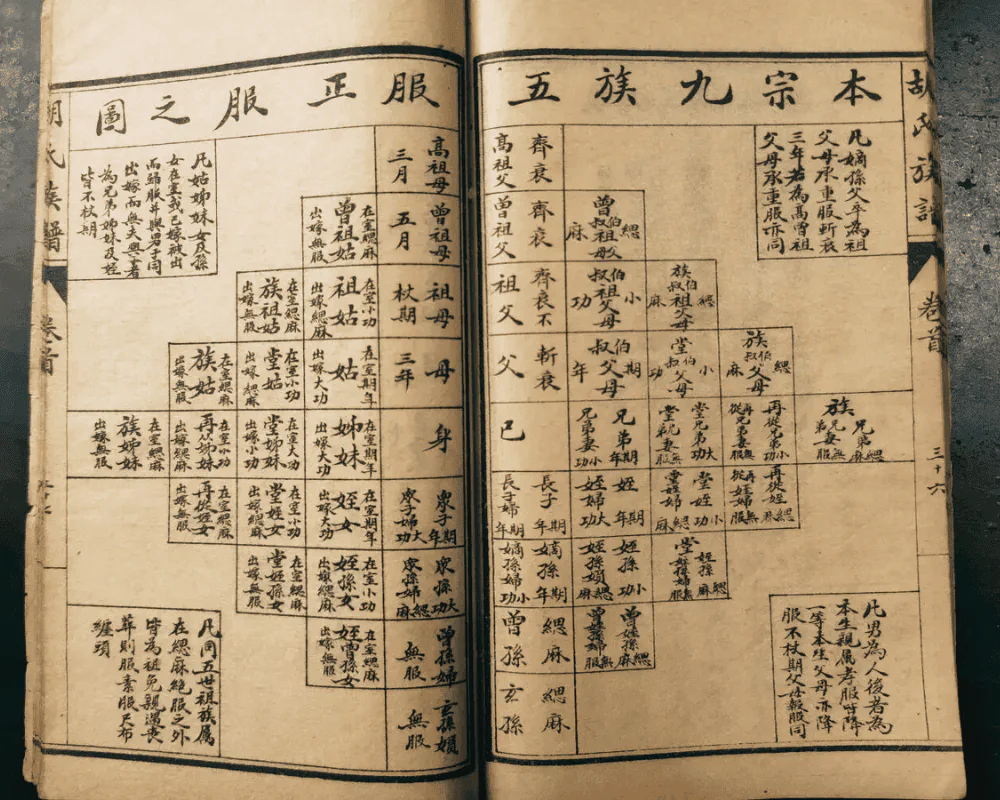 本宗九族五
服正服之圖
胡氏族譜
卷首
三十六
凡嫡孫父卒為祖
父母承重服斬衰
三年若為高曾祖
父母承重服亦同
高祖父
齊衰
曾祖父
齊衰
曾叔伯祖父母
緦麻
祖父
齊衰不
叔伯祖父母
小功
族叔伯祖父母
緦麻
父
斬衰
叔伯父母
期年
堂叔伯父母
小功
族叔伯父母
緦麻
己
兄弟期年
兄弟妻小功
堂兄弟大功
堂兄弟妻無服
再從兄弟小功
再從兄弟妻無服
族兄弟緦麻
族兄弟妻無服
長子期年
長子婦期年
姪期年
姪婦大功
堂姪小功
堂姪婦緦麻
再從姪緦麻
再從姪婦無服
嫡孫期年
嫡孫婦小功
姪孫小功
姪孫婦緦麻
堂姪孫緦麻
堂姪孫婦無服
曾孫
緦麻
曾姪孫緦麻
曾姪孫婦無服
玄孫
緦麻
凡男為人後者為
本生親屬孝服皆降
一等本生父母亦降
服不杖期父母報服同
高祖母
三月
曾祖母
五月
在室緦麻
曾祖姑
出嫁無服
祖母
杖期
在室小功
祖姑
出嫁緦麻
在室緦麻
族祖姑
出嫁無服
母
三年
在室期年
姑
出嫁大功
在室小功
堂姑
出嫁緦麻
在室緦麻
族姑
出嫁無服
身
在室期年
姊妹
出嫁大功
在室大功
堂姊妹
出嫁小功
在室小功
再從姊妹
出嫁緦麻
在室緦麻
族姊妹
出嫁無服
眾子期年
眾子婦大功
在室期年
姪女
出嫁大功
在室小功
堂姪女
出嫁緦麻
在室緦麻
再從姪女
出嫁無服
眾孫大功
眾孫婦緦麻
在室小功
姪孫女
出嫁緦麻
在室緦麻
堂姪孫女
出嫁無服
曾孫婦
無服
在室緦麻
姪曾孫女
出嫁無服
玄孫婦
無服
凡姑姊妹女及孫
女在室或已嫁被出
而歸服並與男子同
出嫁而無夫與子者
為兄弟姊妹及姪
皆不杖期
凡同五世祖族屬
在緦麻絕服之外
皆為祖免親遇喪
葬則服素服尺布
纏頭
胡氏族譜
卷首